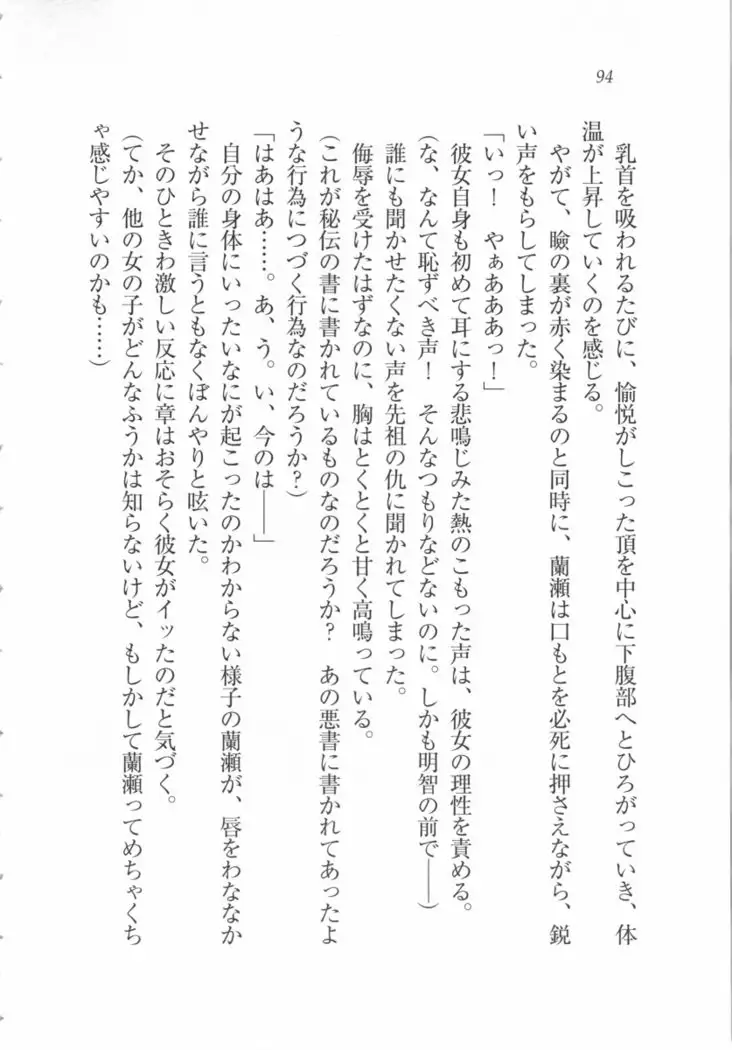 94
乳首を吸われるたびに、愉悦がしこった頂を中心に下腹部へとひろがっていき、体
温が上昇していくのを感じる。
やがて、瞼の裏が赤く染まるのと同時に、蘭瀬は口もとを必死に押さえながら、鋭
い声をもらしてしまった。
「いっ！　やぁあああっ！」
彼女自身も初めて耳にする悲鳴じみた熱のこもった声は、彼女の理性を責める。
（な、なんて恥ずべき声！　そんなつもりなどないのに。しかも明智の前で――）
誰にも聞かせたくない声を先祖の仇に聞かれてしまった。
侮辱を受けたはずなのに、胸はとくとくと甘く高鳴っている。
（これが秘伝の書に書かれているものなのだろうか？　あの悪書に書かれてあったよ
うな行為につづく行為なのだろうか？）
「はあはあ……。あ、う。い、今のは――」
自分の身体にいったいなにが起こったのかわからない様子の蘭瀬が、唇をわななか
せながら誰に言うともなくぼんやりと呟いた。
そのひときわ激しい反応に章はおそらく彼女がイッたのだと気づく。
（てか、他の女の子がどんなふうかは知らないけど、もしかして蘭瀬ってめちゃくち
ゃ感じやすいのかも……）